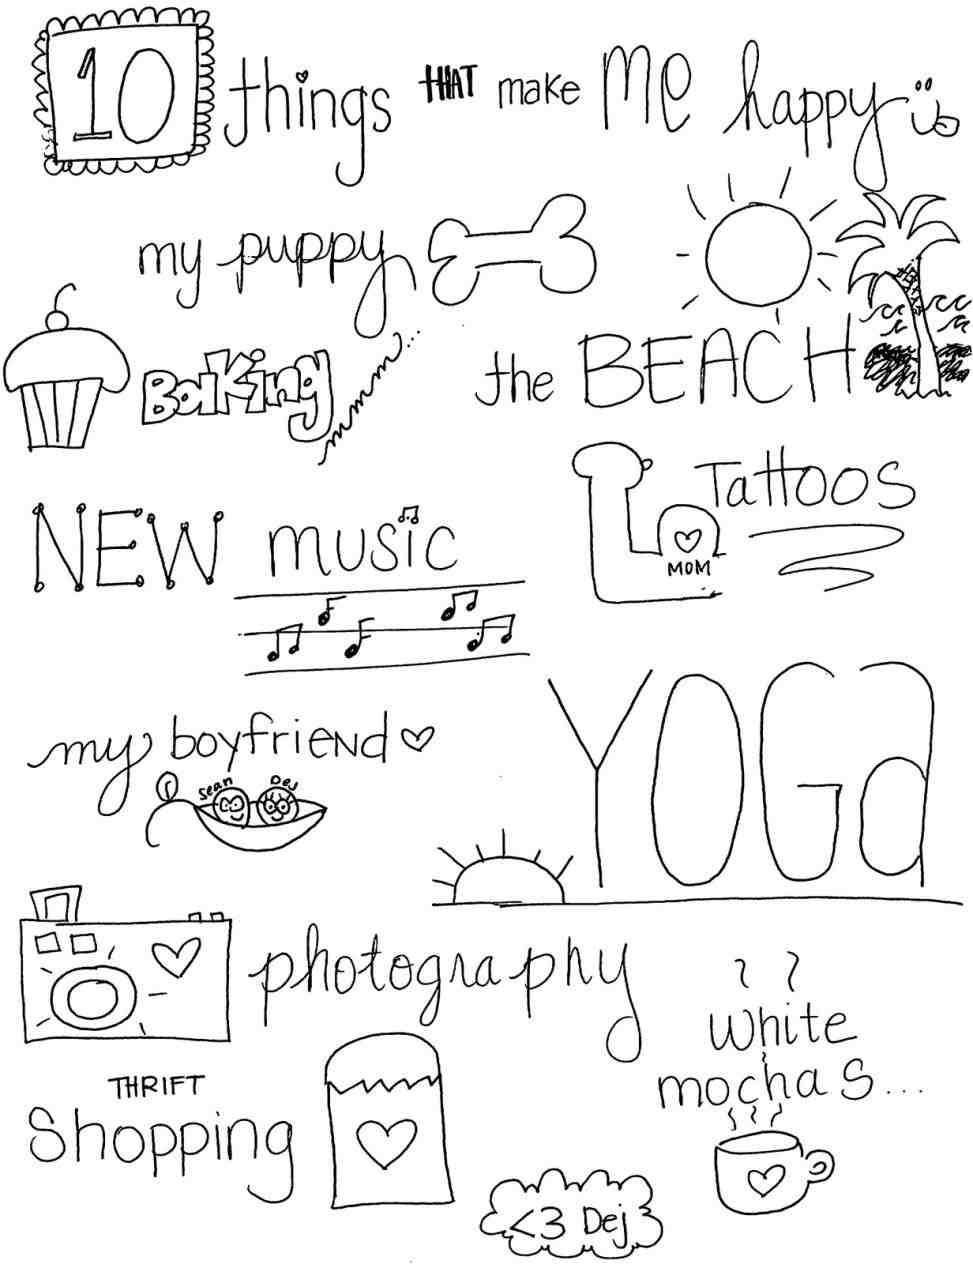 10 things THAT make me happy
my puppy
Baking
mmmm...
the BEACH
Tattoos
MOM
NEW music
my boyfriend
Sean Dej
YOGa
photography
white
mochas...
THRIFT
Shopping
<3 Dej